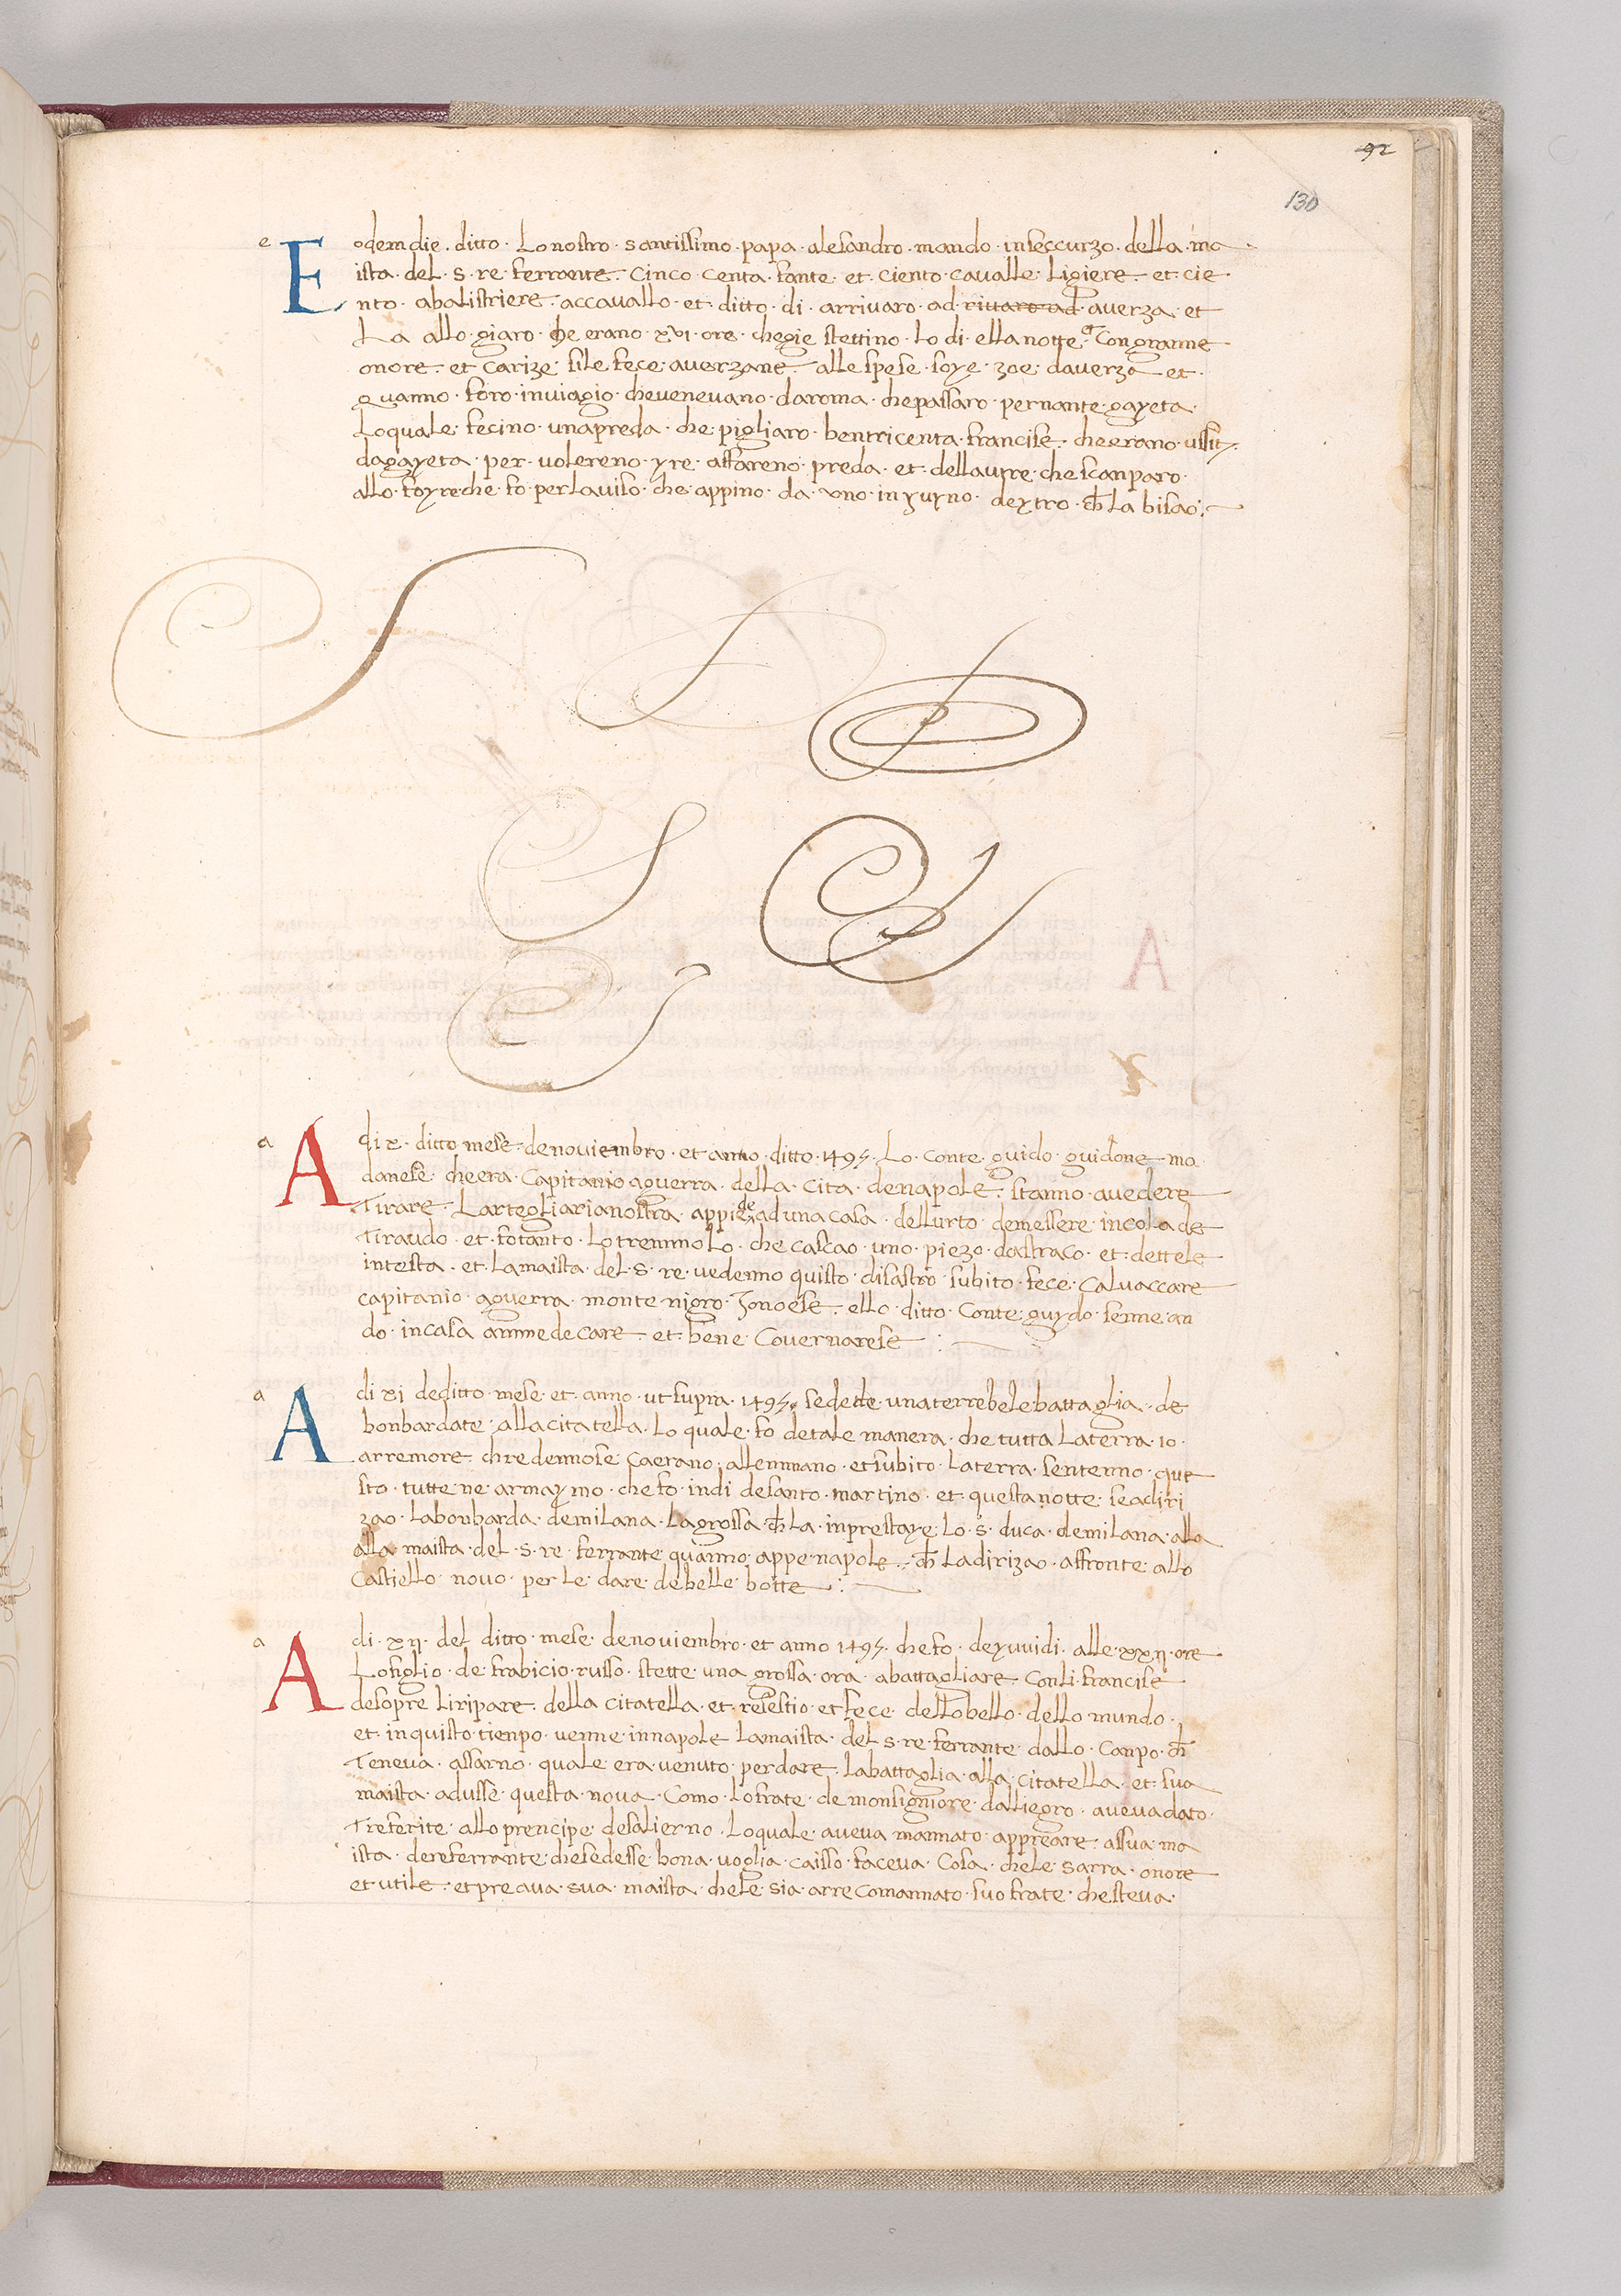 92
130
e Eodem die · ditto · Lo nostro · santissimo · papa · alesandro · mando · inseccurzo · della · ma
ista · del · s · re ferrante · Cinco · Centa · fante · et · ciento · cavalle · Ligiere · et · cie
nto · abalistriere · accavallo · et · ditto · di · arrivaro · ad · rivaro ad · averza · et
La allo · giaro · che erano · xvi · ore · chegie stettino · lo di · ella notte · Con granne
onore · et Carize · file fece · averzane · alle spese · soye · zoe · daverza · et ·
quanno · foro · inviagio · chevenevano · daroma · chepassaro · pernante · gayeta ·
Loquale · fecino · unapreda · che · pigliaro · bentricenta · francise · cheerano ·
dagayeta · per · volereno · yre · affareno · preda · et · dellautre · che scanparo ·
allo · foyreche · fo · perlaviso · che · appino · da · uno · dextro · ch La bisao
a Adi x · ditto mese · denoviembro · et anno · ditto · 1495 · Lo · Conte · guido · guidone · mo
danese · cheera · Capitanio aguerra · della · Cita · denapole · stanno · avedere
Tirare · Lartegliarianostra · appiede · ad una casa · dellurto · demessere · incola de
Tiraudo · et · fotanto · Lotremmolo · che cascao · uno · piezo · dastraco · et · dettele
intesta · et · Lamaista · del · s · re · vedenno quisto · disastro · subito · fece · Calvaccare
capitanio · aguerra · monte nigro · Zonoese · ello · ditto · Conte · guydo · senne · an
do · incasa ammedecare · et · bene · Covernarese
a Adi xi deditto · mese · et · anno · ut supra · 1495 · sedette · unaterrebelebattaglia · de
bonbardate · alla citatella · Lo quale · fo detale manera · che tutta Laterra · 10 ·
arremore · chredennose Gaetano · allenmano · etsubito · laterra · sentenno · que
sto · tutte ne armaymo · che fo · indi desanto · martino · et · questa notte · seadiri
zao · labonbarda · demilana · Lagrossa · ch La · inprestaye · Lo · s · duca · demilana · alla
alla maista · del · s · re · ferrante · quanno · appe · napole · ch Ladirizao · affronte · allo
Castiello · novo · per le · dare · debelle · botte
a Adi · xii · del ditto · mese · denoviembro · et anno 1495 · che fo · deyuvidi · alle · xxii · ore
Lofiglio · de · frabicio · russo · stette · una grossa · ora · abattagliare · Conli · francise
desopre liripare · della citatella · et · resestio · et fece · dellobello · dello mundo ·
et · inquisto · tienpo · venne · innapole Lamaista · del s · re · ferrante · dallo · Canpo · ch
Teneva · assarno · quale · era · venuto · perdare · labattaglia · alla · citatella · et · sua
maista · adusse · questa · nova · Como · Lofrate · de monsigniore · dalliegro · aveva dato ·
Treferite · allo prencipe · desalierno · Loquale · aveva mannato · appreare · assua · ma
ista · dereferrante · chesedesse · bona · voglia · caisso · faceva · Cosa · chele · sarra · onore
et utile · et preava · sua · maista · chele · sia · arrecomannato · suo frate · chesteva ·